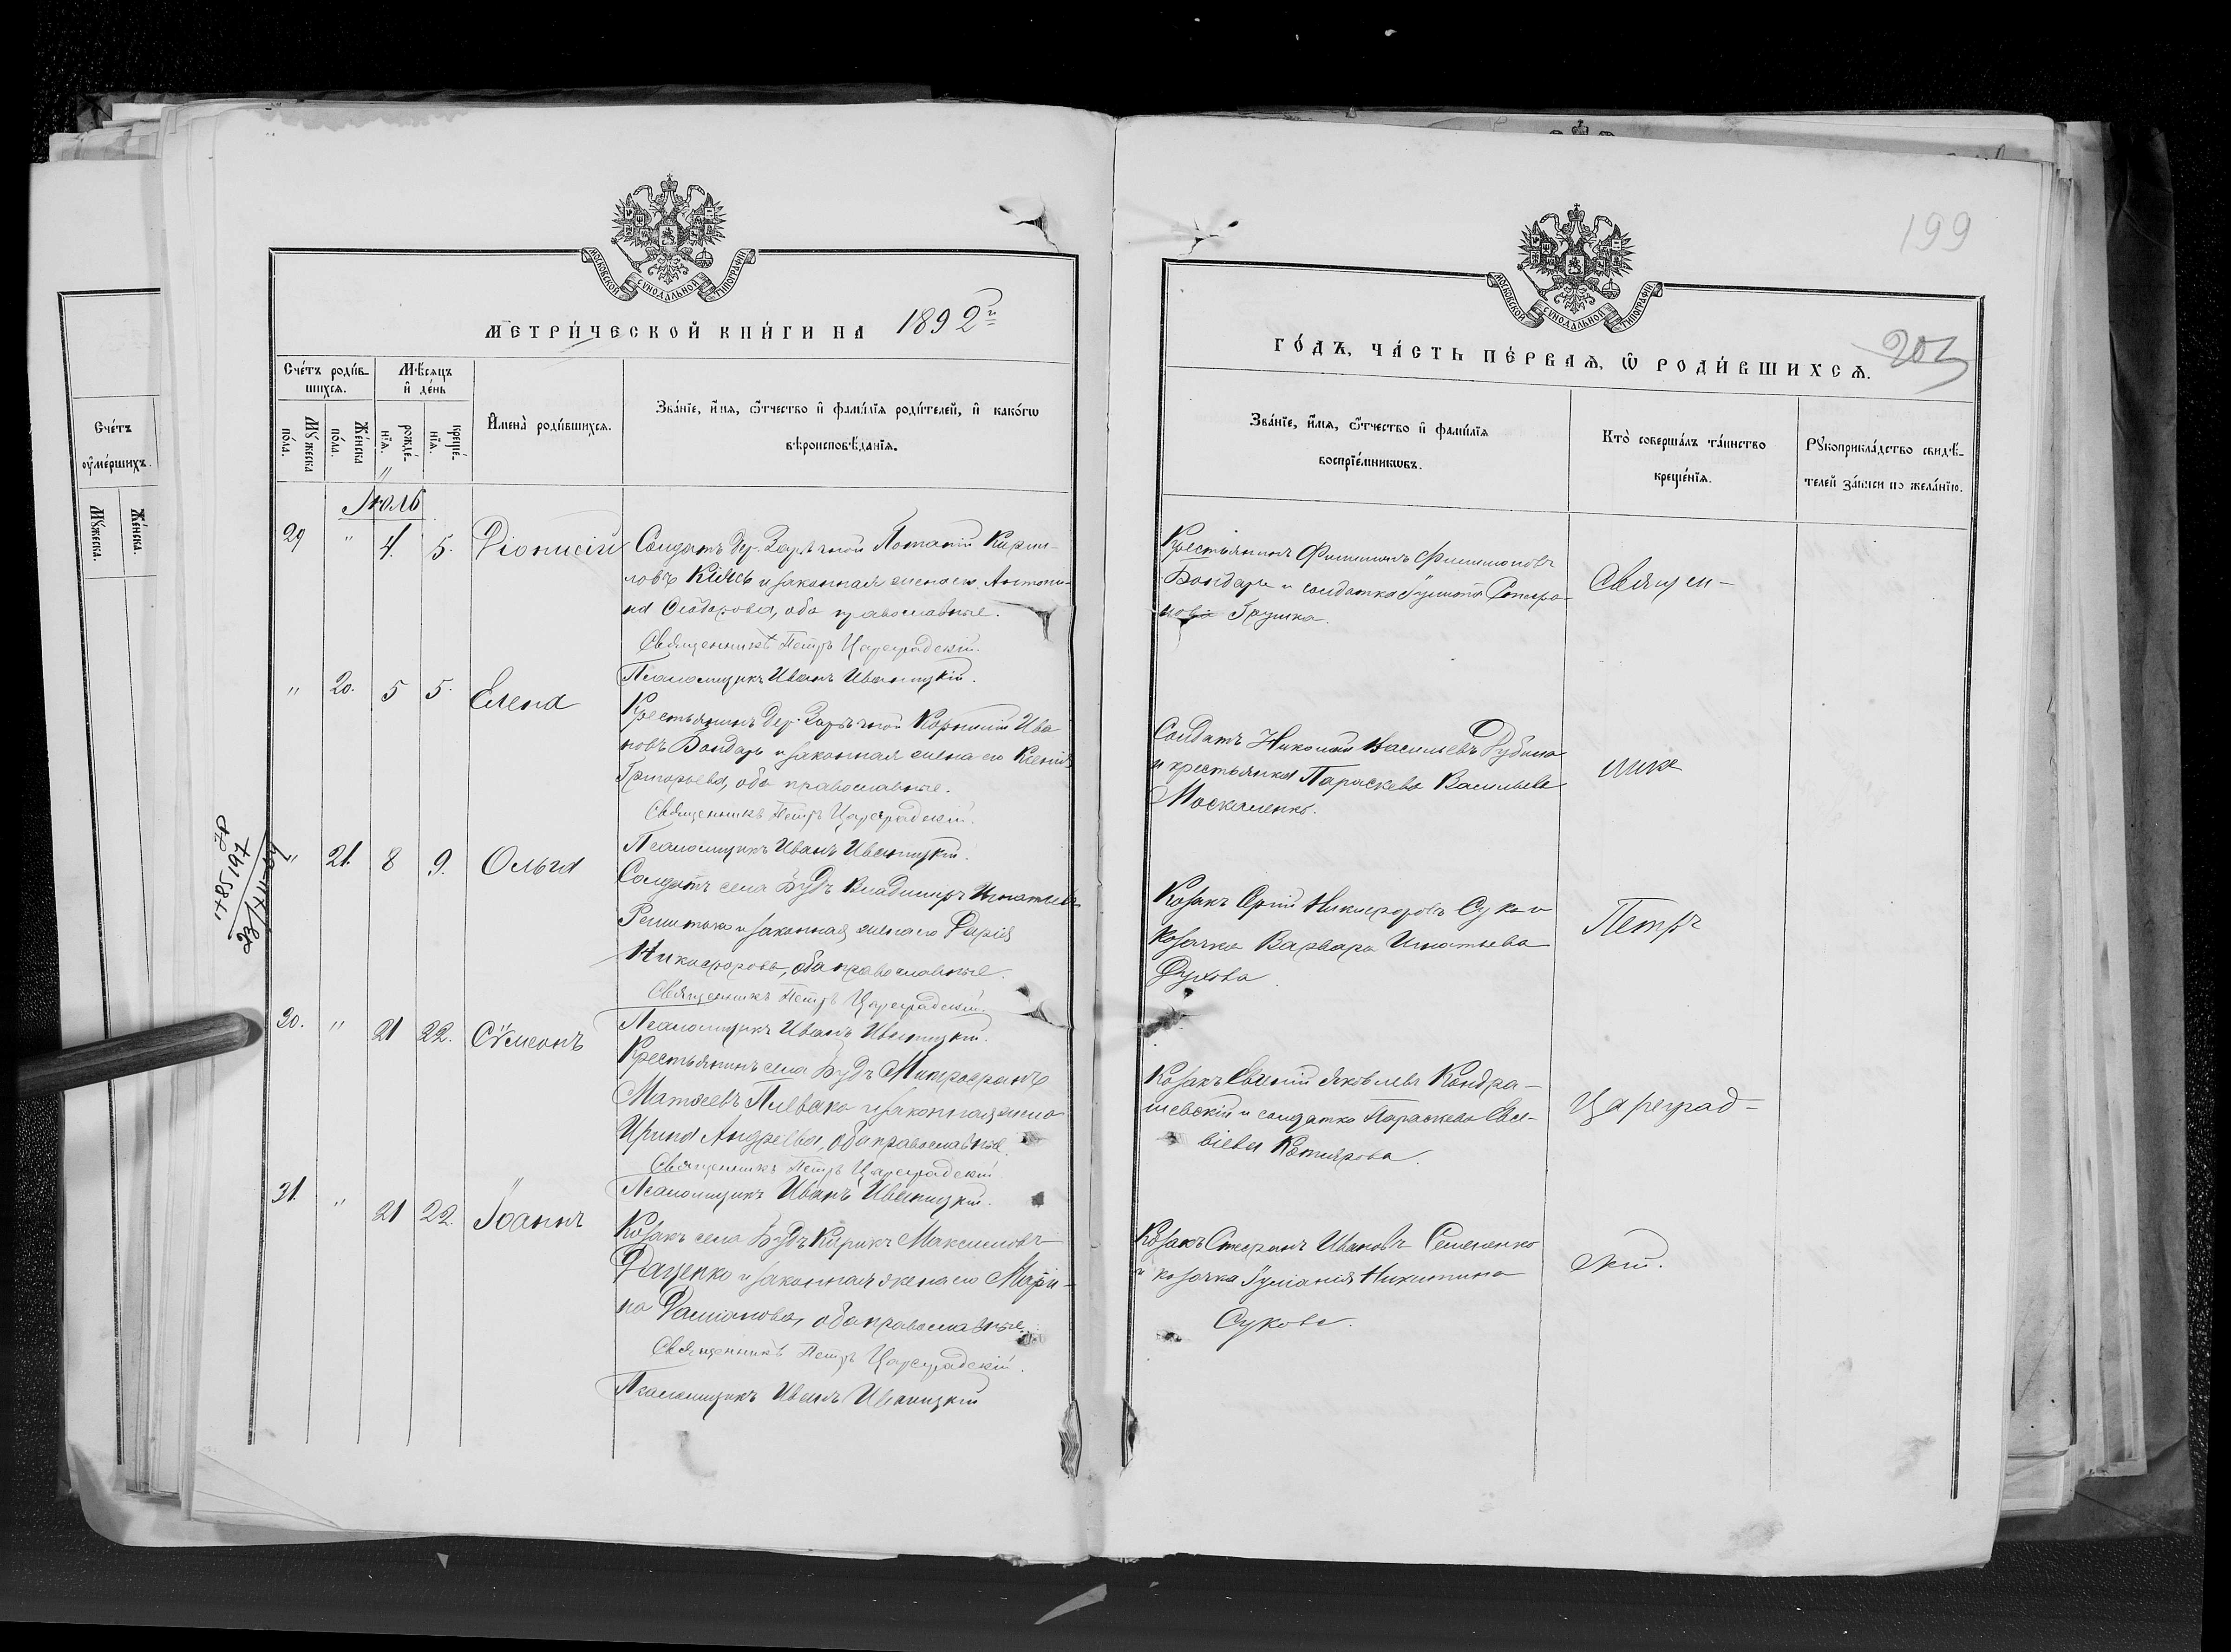 МОСКОВСКОЙ СѴНОДАЛЬНОЙ ТИПОГРАФІИ
МЕТРИ́ЧЕСКОЙ КНИ́ГИ НА 1892й
Сче́тъ роди́в-
шихся.
Мѣ́сяцъ
и҆ де́нь
Мꙋ́жеска
по́ла.
Же́нска
по́ла.
рожде́-
нїѧ.
креще́-
нїѧ.
И҆мена̀ роди́вшихсѧ.
Зва́нїе, и҆́мѧ, ѻ҆́тчество и҆ фамі́лїѧ роди́телей, и҆ како́гѡ
вѣроисповѣ́данїѧ.
Сче́тъ
ᲂу҆ме́ршихъ.
Мꙋ́жеска.
Же́нска.
Іюль
29 " 4. 5. Діонисій
Солдатъ дер. Зарѣчной Потапій Кирил-
ловъ Кіясь и законная жена его Антони-
на Ѳеодорова, оба православные.
Священникъ Петръ Цареградскій.
Псаломщикъ Иванъ Иваницкій.
" 20. 5 5. Елена
Крестьянинъ дер. Зарѣчной Корнилій Ива
новъ Бондарь и законная жена его Ксенія
Григорьева, оба православные.
Священникъ Петръ Цареградскій.
Псаломщикъ Иванъ Иваницкій.
" 21. 8 9. Ольга
Солдатъ села Будъ Владимиръ Игнатьевъ
и законная жена его Дарія
Никифорова, оба православные.
Священникъ Петръ Цареградскій.
Псаломщикъ Иванъ Иваницкій.
30. " 21 22. Сѵмеонъ
Крестьянинъ села Будъ Митрофанъ
Матѳеевъ Пивбако и законная жена
Ирина Андреева, оба православные.
Священникъ Петръ Цареградскій
Псаломщикъ Иванъ Иваницкій.
31. " 21 22. Іоаннъ
Козакъ села Будъ Кирикъ Максимовъ
Даценко и законная жена его Мари-
на Даміанова, оба православные.
Священникъ Петръ Цареградскій.
Псаломщикъ Иванъ Иваницкій
199
МОСКОВСКОЙ СѴНОДАЛЬНОЙ ТИПОГРАФІИ
ГО́ДЪ, ЧА́СТЬ ПЕ́РВАѦ, Ѡ҆ РОДИ́ВШИХСѦ.
Зва́нїе, и҆́мѧ, ѻ҆́тчество и҆ фамі́лїѧ
воспрїе́мникѡвъ.
Кто̀ соверша́лъ та́инство
креще́нїѧ.
Рꙋкоприкла́дство свидѣ́-
телей за́писи по жела́нїю.
Крестьянинъ Филимонъ Филимоновъ
Бондарь и солдатка
Грушка.
Солдатъ Николай Васильевъ
и крестьянка Параскева Васильева
Москаленко.
Козакъ Никифоровъ Суков
козачка Варвара Игнатьева
Духова
Козакъ Евгеній Яковлевъ Кондра-
шевскій и солдатка Параскева Евсе-
віева
Козакъ Стефанъ Ивановъ Семененко
и козачка Іуліанія Никитина
Сукова.
Священ-
никъ
Петръ
Цареград-
скій.